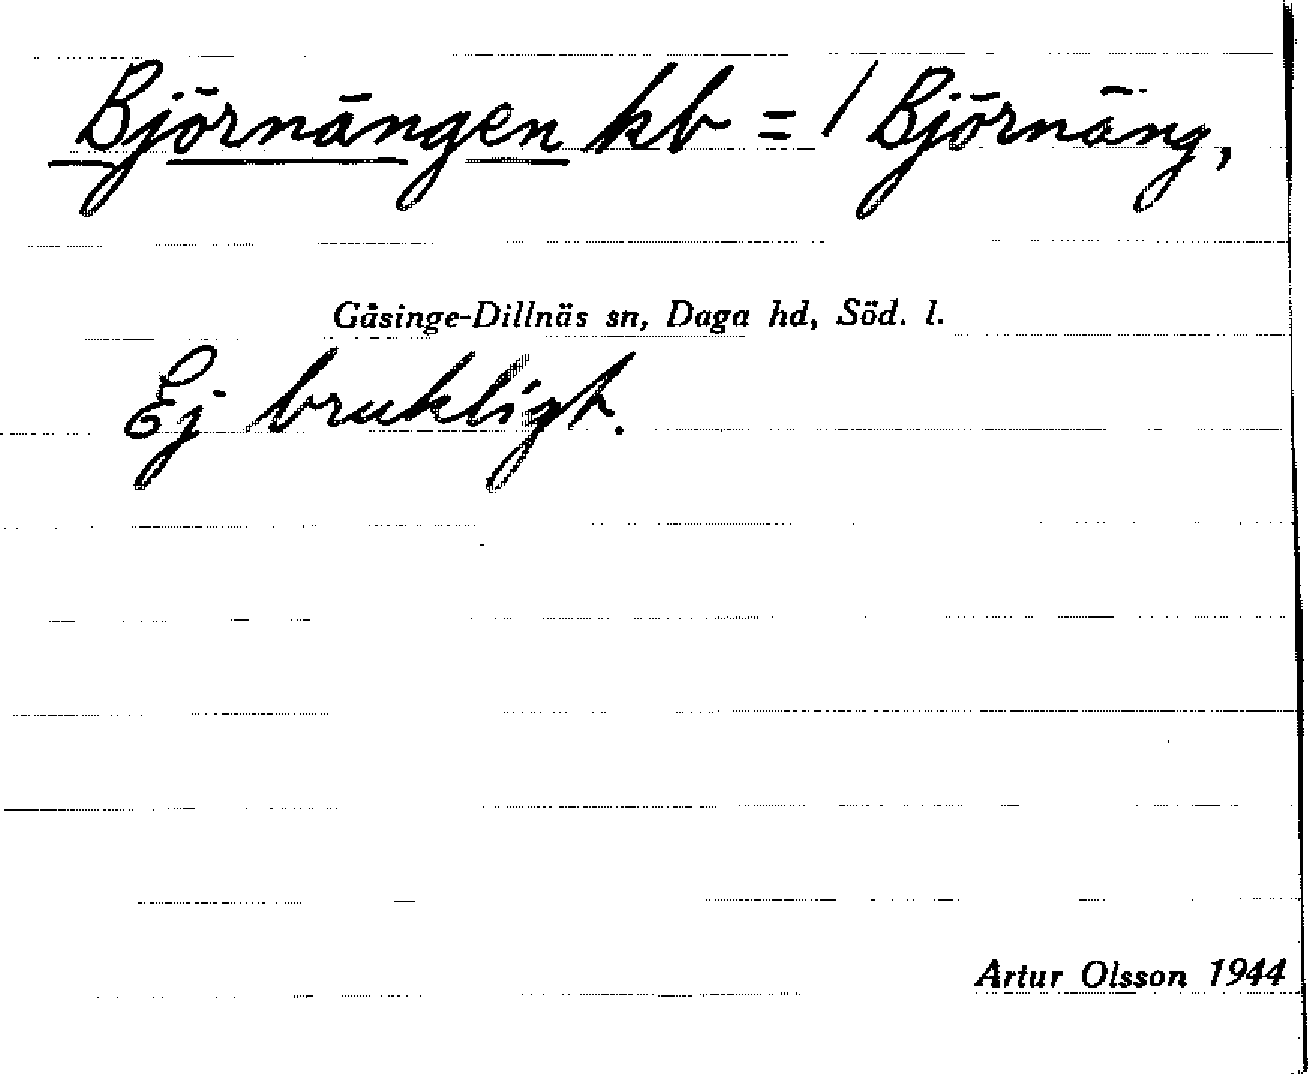 Björnängen kb = / Björnäng,
Gåsinge-Dillnäs sn, Daga hd, Söd. l.
Ej brukligt.
Artur Olsson 1944